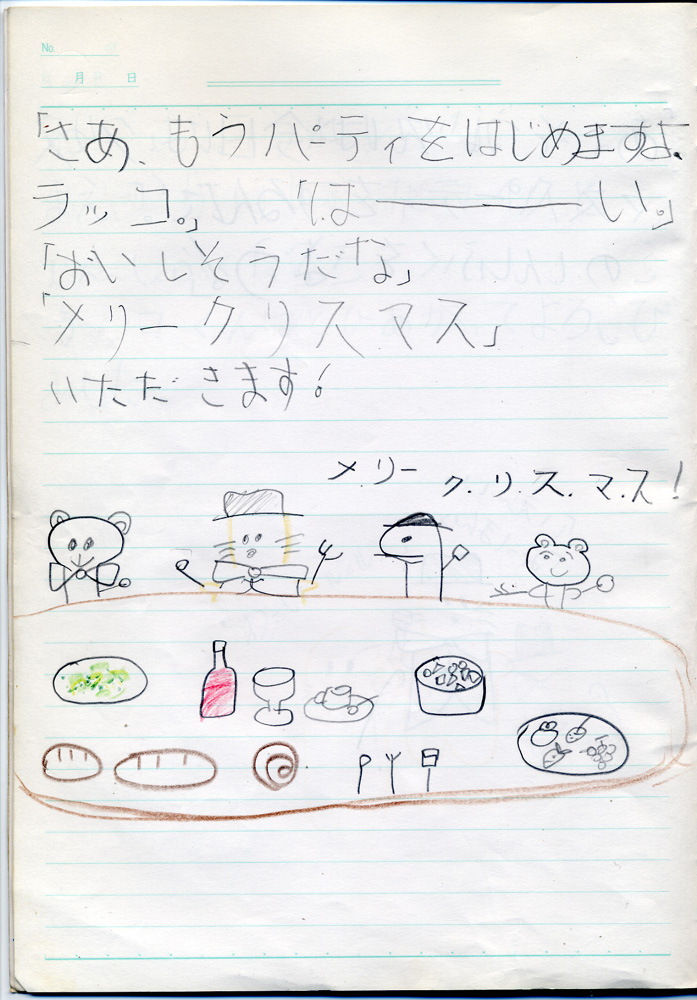 No.
月 日
「さあ、もうパーティをはじめますよ、
ラッコ。」「は―――――い。」
「おいしそうだな」
「メリークリスマス」
いただきます!
メ.リー
ク.リ.ス.マ.ス!